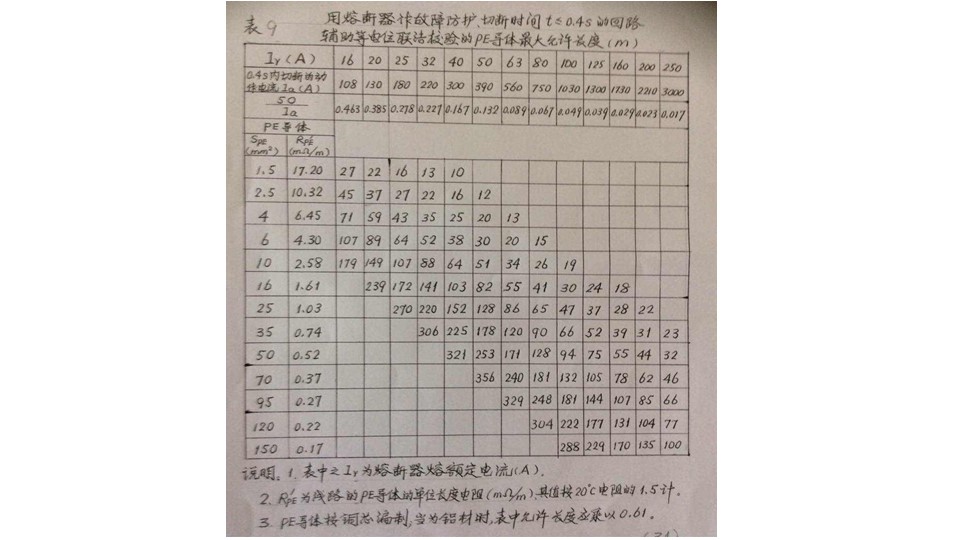 表9
用熔断器作故障防护、切断时间 t≤0.4s 的回路
辅助等电位联结校验的PE导体最大允许长度(m)
Ir(A) 16 20 25 32 40 50 63 80 100 125 160 200 250
0.4s内切断的动
作电流Ia(A) 108 130 180 220 300 390 560 750 1030 1300 1730 2210 3000
50/Ia 0.463 0.385 0.278 0.227 0.167 0.132 0.089 0.067 0.049 0.039 0.029 0.023 0.017
PE导体
SPE (mm²) R'PE (mΩ/m)
1.5 17.20 27 22 16 13 10
2.5 10.32 45 37 27 22 16 12
4 6.45 71 59 43 35 25 20 13
6 4.30 107 89 64 52 38 30 20 15
10 2.58 179 149 107 88 64 51 34 26 19
16 1.61 239 172 141 103 82 55 41 30 24 18
25 1.03 270 220 152 128 86 65 47 37 28 22
35 0.74 306 225 178 120 90 66 52 39 31 23
50 0.52 321 253 171 128 94 75 55 44 32
70 0.37 356 240 181 132 105 78 62 46
95 0.27 329 248 181 144 107 85 66
120 0.22 304 222 177 131 104 77
150 0.17 288 229 170 135 100
说明: 1. 表中之Ir为熔断器熔额定电流(A).
2. R'PE为线路的PE导体的单位长度电阻(mΩ/m),其值按20℃电阻的1.5计.
3. PE导体按铜芯编制,当为铝材时,表中允许长度应乘以0.61.